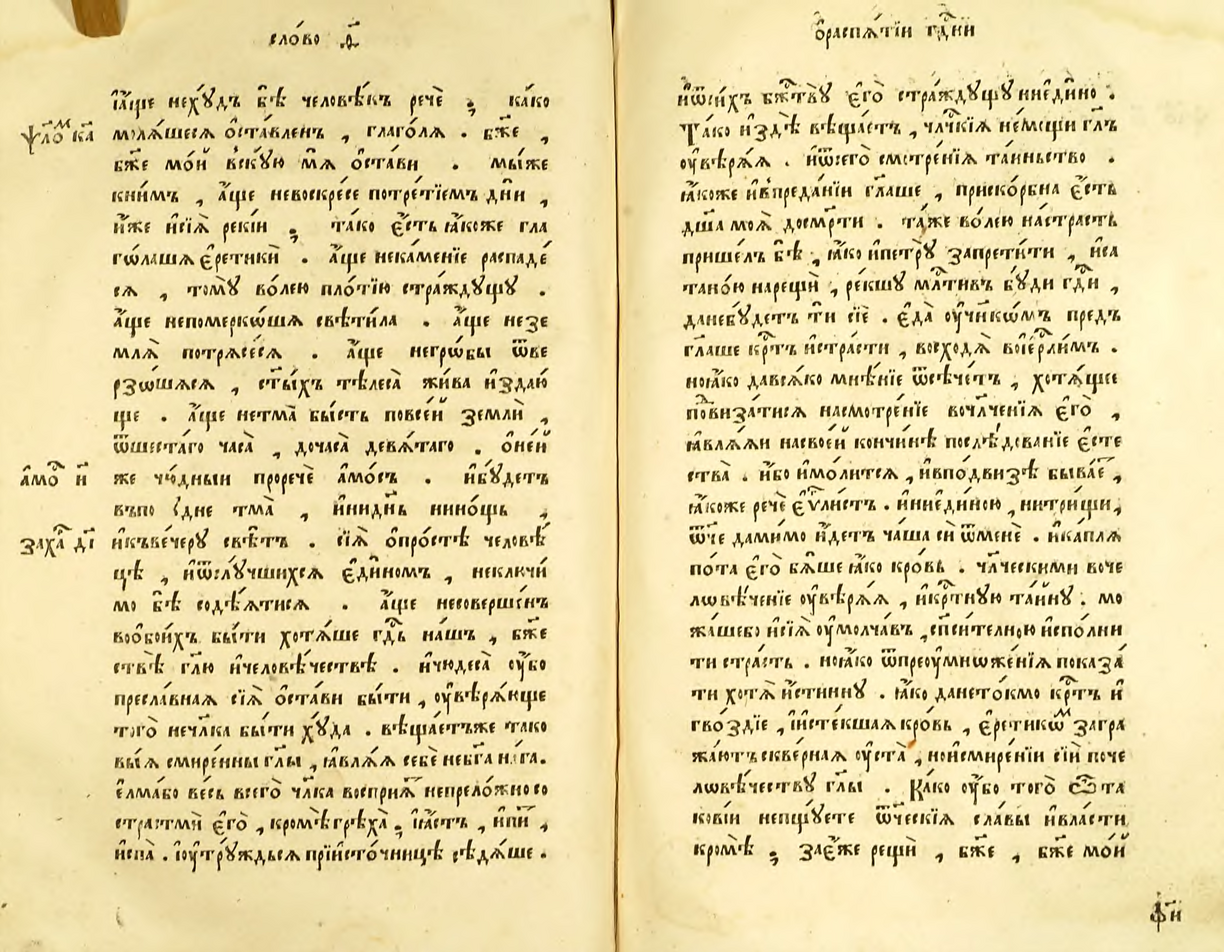 сло́во д҃
і҆а҆́ще нехꙋ́дъ бѣ̀ человѣ́къ речѐ ; ка́ко
ѱало́м ка
моля́шеся ѡ҆ста́вленъ , глаго́ля . бж҃е ,
бж҃е мо́й вскꙋ́ю мѧ̀ ѡ҆ста́ви . мы́же
кни́мъ , а҆́ще невоскре́се потре́тїемъ дн҃и ,
и҆́же и҆сїѧ̀ реќїи ; та́ко є҆́сть ꙗ҆́коже гла
го́лашѧ є҆ретикѝ . а҆́ще нека́менїе распаде́
сѧ , томꙋ̀ во́лею пло́тїю стра́ждꙋщꙋ .
а҆́ще непоме́ркѡшѧ свѣти́ла . а҆́ще незе
млѧ̀ потрѧсе́сѧ . а҆́ще негро́бы ѿве
рзо́шѧсѧ , ст҃ы́хъ тѣлеса̀ жи́ва и҆здаю́
ще . а҆́ще нетма̀ бы́сть повсе́й землѝ ,
ѿшеста́го часа̀ , дочаса̀ девѧ́таго . ѡ҆не́й
а҆мо́с и҃
же чю́дныи проречѐ а҆мо́съ . и҆бꙋ́детъ
въпо дне тма̀ , и҆ни́днь нино́щь ,
заха́р д҃і
и҆къве́черꙋ свѣ́тъ . сїѧ̀ ѡ҆про́стѣ человѣ́
цѣ , и҆ѿлꙋ́чшихсѧ є҆ди́номъ , неключи́
мо бѣ̀ содѣ́ѧтисѧ . а҆́ще несоверше́нъ
вообои́хъ бы́ти хотѧ́ше гд҇ь на́шъ , бж҃е
ствѣ̀ гл҃ю и҆человѣ́чествѣ . и҆чюдеса̀ ᲂу҆́бо
пресла́внаѧ сїѧ̀ ѡ҆ста́ви бы́ти , ᲂу҆вѣрѧ́юще
того̀ нечл҃ка бы́ти хꙋ́да . вѣща́етъже тако
выѧ̀ смире́нны гл҃ы , ꙗ҆влѧ́ѧ себѐ небг҃а на́га .
є҆лма́бо весь всего̀ чл҃ка воспри́ѧ непрело́жно со
страстмѝ є҆го̀ , кромѣ̀грѣха̀ ; ꙗ҆́стъ , и҆пи́и ,
и҆спа̀ . и҆ᲂутрꙋ́ждьсѧ прїи҆сто́чницѣ сѣдѧ́ше .
ѡ҆распѧ́тїи гд҇ни
и҆ѡ҆си́хъ бж҇твꙋ̀ є҆го̀ стра́ждꙋщꙋ ниеди́но .
Та́ко и҆здѣ̀ вѣща́етъ , чл҃чкїѧ не́мощи гл҃ъ
ᲂу҆вѣрѧ́ѧ . и҆ѡ҆сего̀ смотре́нїѧ та́иньство .
ꙗ҆́коже и҆впреда́нїи гл҃аше , приско́рбна є҆́сть
дш҃а моѧ̀ досмр҃ти . та́же во́лею на́страсть
прише́лъ бѣ̀ , ꙗ҆́ко и҆петрꙋ̀ запрети́ти , и҆са
тано́ю нарещѝ , ре́кшꙋ млⷭ҇тивъ бꙋ́ди гд҇и ,
данебꙋ́детъ ти сїѐ . є҆да̀ ᲂу҆ч҃нко́мъ предъ
гл҃аше крⷭ҇тъ и҆стра́сти , восходѧ̀ воі҆ерл҇имъ .
нокꙗ́ко давсѧ́ко мнѣ́нїе ѿсѣче́тъ , хотѧ́щее
подвиза́тисѧ насмотре́нїе вочл҃че́нїѧ є҆го̀ ,
ꙗ҆влѧ́ѧи насвое́й кончи́нѣ послѣ́дованїе є҆сте
ства̀ . и҆́бо и҆мо́литсѧ , и҆вподви́зѣ быва́е ,
ꙗ҆́коже речѐ є҆ѵⷢ҇листъ . и҆ниеди́ною , нитри́щи ,
ѿч҃е дами́мо и҆́детъ ча́ша сѝ ѿменѐ . и҆ка́плѧ
по́та є҆го̀ бѧ́ше ꙗ҆́ко кро́вь . чл҃ческими воче
ловѣ́ченїе ᲂу҆вѣрѧ́ѧ , и҆крⷭ҇тнꙋю та́йнꙋ . мо
жа́шебо и҆сїѧ̀ ᲂу҆молча́въ , сп҃си́телною и҆спо́лни
ти стра́сть . ноꙗ҆́ко ѿпреоу҆множе́нїѧ показа́
ти хотѧ̀ и҆́стиннꙋ . ꙗ҆́ко дането́кмо крⷭ҇тъ и҆
гво́здїе , и҆исте́кшаѧ кро́вь , є҆ретико́м загра
жа́ютъ скве́рнаѧ ᲂу҆ста̀ , нои҆смире́нїи сїѝ поче
ловѣ́чествꙋ гл҃ы . Ка́ко ᲂу҆́бо того̀ ѿ та
ко́вїи непщꙋ́ете ѿч҃ескїѧ сла́вы и҆вла́сти
кромѣ̀ ; зає҆́же рещѝ , бж҃е , бж҃е мо́й
ф҃и